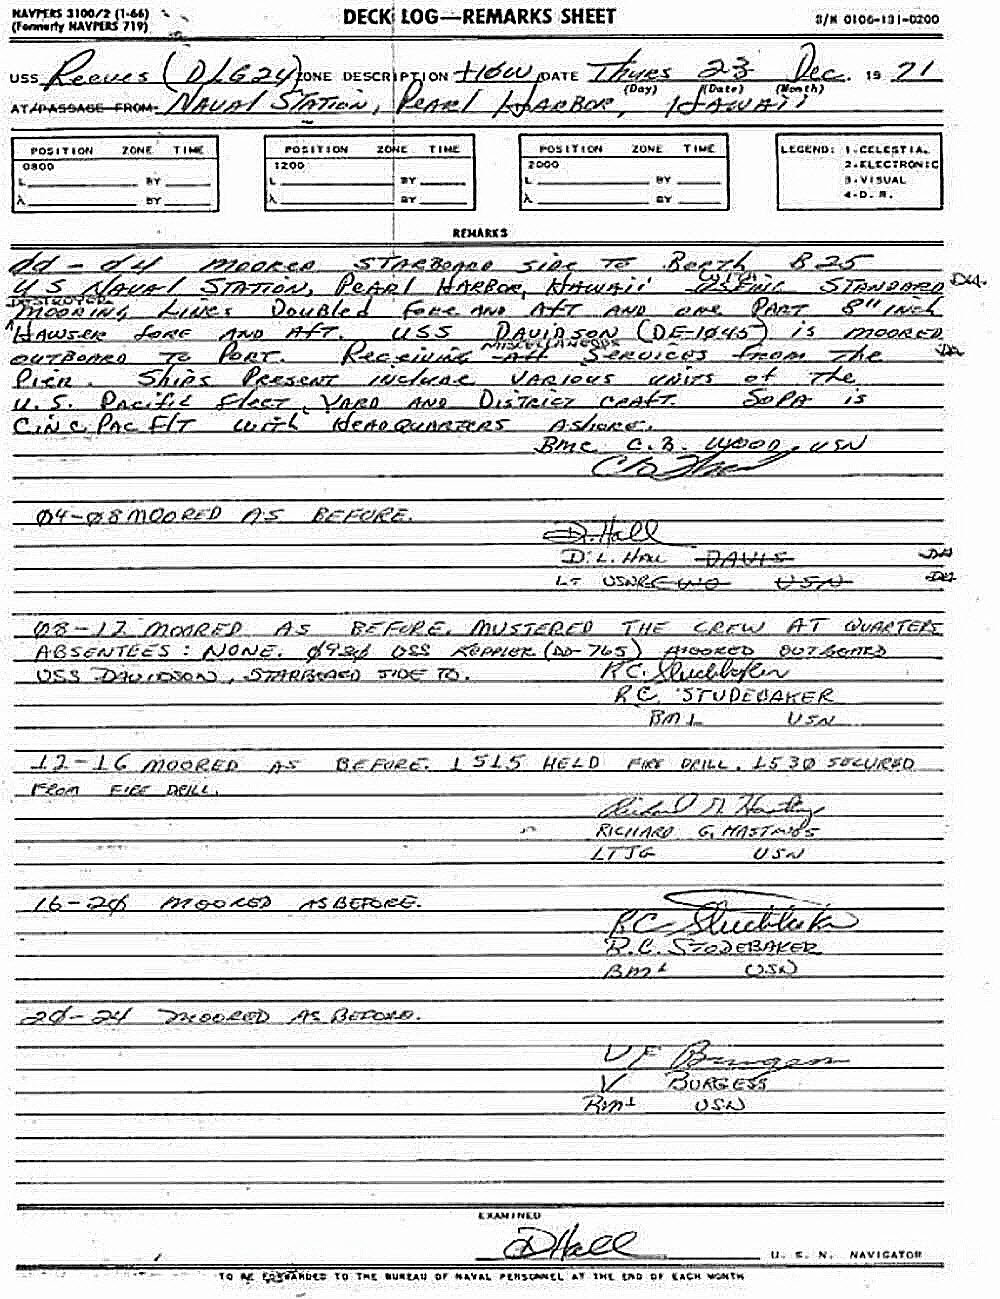 NAVPERS 3100/2 (1-66)
(Formerly NAVPERS 719)
DECK LOG—REMARKS SHEET
S/N 0106-131-0200
USS Reeves (DLG24) ZONE DESCRIPTION +10W DATE Thurs 23 Dec. 19 71
(Day) (Date) (Month)
AT/PASSAGE FROM Naval Station, Pearl Harbor, Hawaii
POSITION ZONE TIME
0800
L BY
λ BY
POSITION ZONE TIME
1200
L BY
λ BY
POSITION ZONE TIME
2000
L BY
λ BY
LEGEND: 1-CELESTIAL
2-ELECTRONIC
3-VISUAL
4-D. R.
REMARKS
00-04 MOORED STARBOARD side TO Berth B25
U S NAVAL STATION, PEARL HARBOR, HAWAII USING WITH STANDARD DH
DESTROYER
MOORING Lines Doubled fore AND AFT AND ONE PART 8" inch
HAWSER fore AND AFT. USS DAVIDSON (DE-1045) is MOORED
OUTBOARD TO PORT. Receiving All MISCELLANEOUS Services from The DH
Pier. Ships Present include VARIOUS units of The
U.S. Pacific Fleet, YARD AND DISTRICT CRAFT. SOPA is
CinC Pac Flt with HEADQUARTERS Ashore.
BMC C.B. WOOD, USN
04-08 MOORED AS BEFORE.
D. Hall
D. L. HALL DAVIS DH
LT USNR CWO USN DH
08-12 MOORED AS BEFORE. MUSTERED THE CREW AT QUARTERS
ABSENTEES: NONE. USS KOPPLER (DD-765) MOORED OUTBOARD
USS DAVIDSON, STARBOARD SIDE TO. R.C. Studebaker
R.C. STUDEBAKER
BM1 USN
12-16 MOORED AS BEFORE. 1515 HELD FIRE DRILL. 1530 SECURED
FROM FIRE DRILL.
Richard G. Hastings
RICHARD G. HASTINGS
LTJG USN
16-20 MOORED AS BEFORE.
R.C. Studebaker
R.C. STUDEBAKER
BM1 USN
20-24 MOORED AS BEFORE.
V F Burgess
V BURGESS
BM1 USN
EXAMINED
D Hall
U. S. N. NAVIGATOR
TO BE FORWARDED TO THE BUREAU OF NAVAL PERSONNEL AT THE END OF EACH MONTH